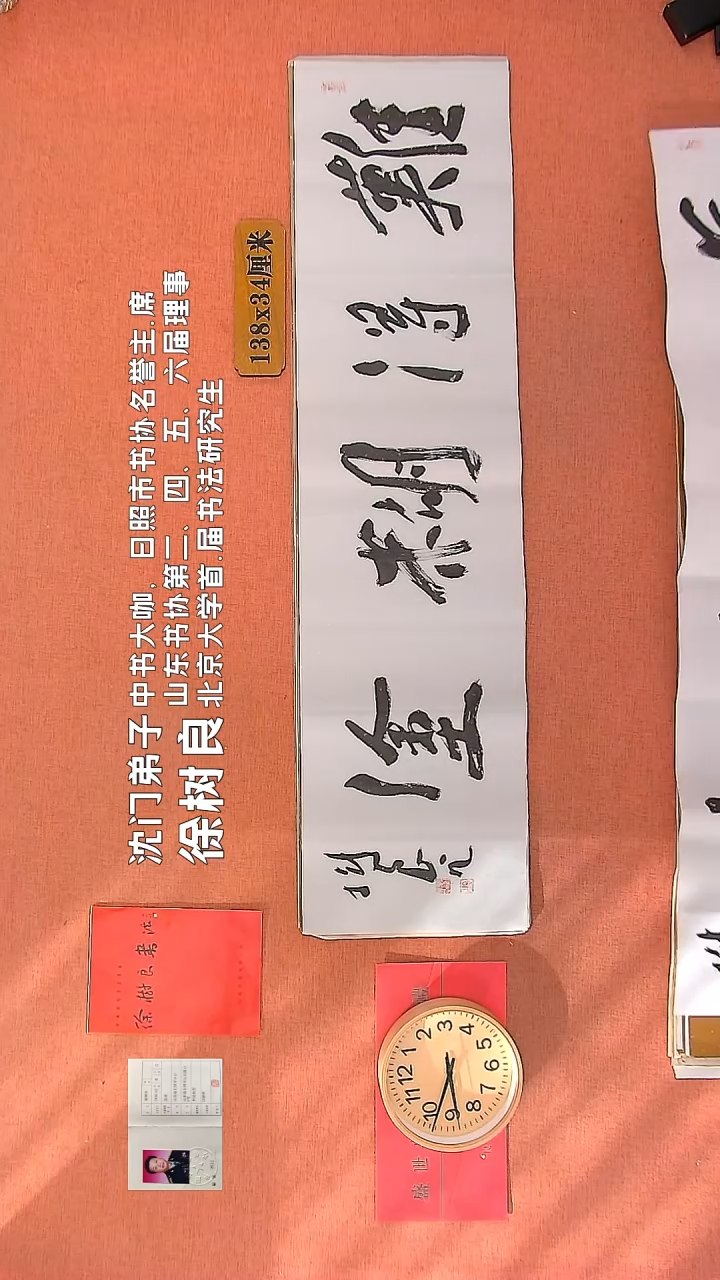 沈门弟子
徐树良
中书大咖. 日照市书协名誉主.席
山东书协第二、四、五、六届理事
北京大学首.届书法研究生
138x34厘米
難得糊塗
樹良
徐樹良書法
盛世
12
1
2
3
4
5
6
7
8
9
10
11